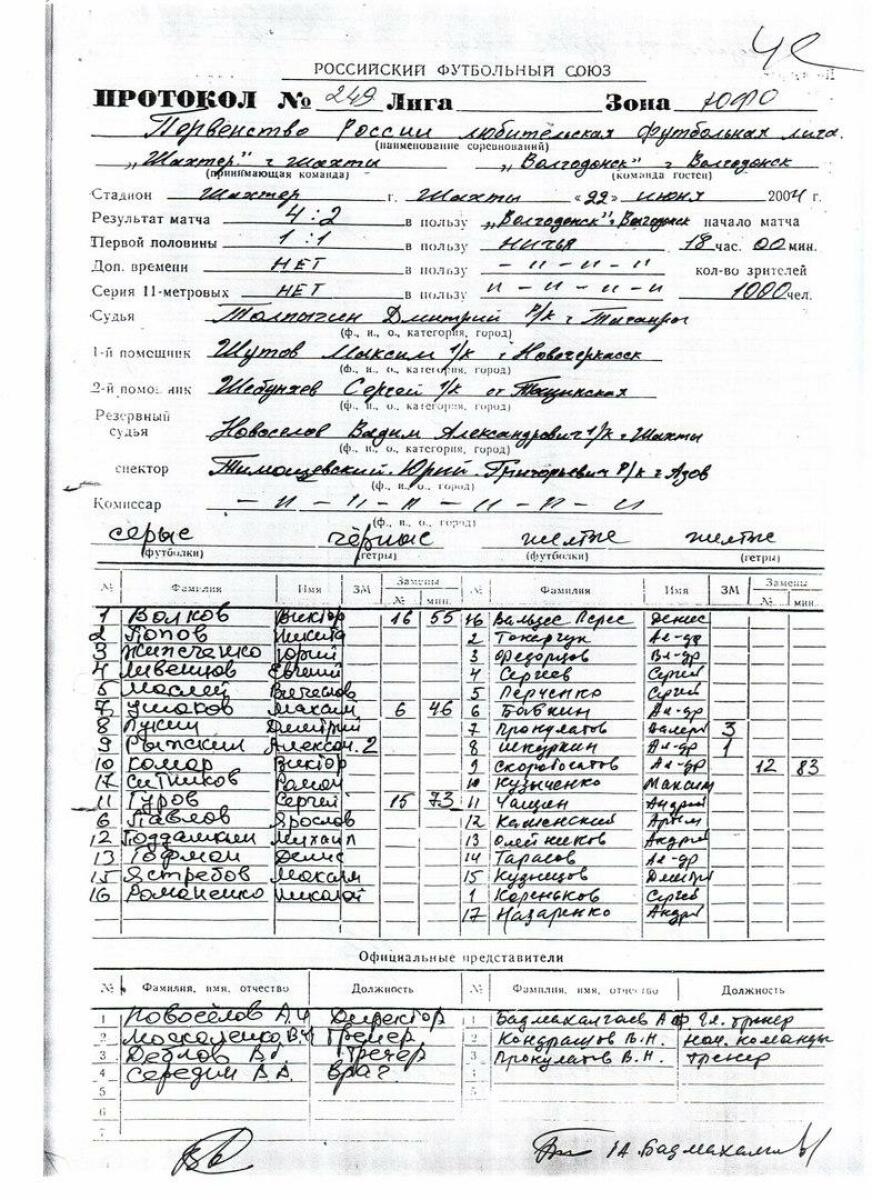 РОССИЙСКИЙ ФУТБОЛЬНЫЙ СОЮЗ
ПРОТОКОЛ № 249 Лига Зона ЮФО
Первенство России любительская футбольная лига.
(наименование соревнований)
„Шахтер" г Шахты „Волгодонск" г Волгодонск
(принимающая команда) (команда гостей)
Стадион Шахтер г. Шахты «22» июня 2004 г.
Результат матча 4:2 в пользу „Волгодонск" г. Волгодонск начало матча
Первой половины 1:1 в пользу ничья 18 час. 00 мин.
Доп. времени НЕТ в пользу – и – и – и кол-во зрителей
Серия 11-метровых НЕТ в пользу и – и – и – и 1000 чел.
Судья Толпыгин Дмитрий Р/к г Таганрог
(ф., и., о., категория, город)
1-й помощник Шутов Максим 1/к г Новочеркасск
(ф., и., о., категория, город)
2-й помощник Шебуняев Сергей 1/к
(ф., и., о., категория, город)
Резервный
судья Новоселов Вадим Александрович 1/к г Шахты
(ф., и., о., категория, город)
спектор Тимошевский Юрий Григорьевич Р/к г Азов
(ф., и., о., город)
Комиссар – и – и – и – и – и – и
(ф., и., о., город)
серые чёрные желтые желтые
(футболки) (гетры) (футболки) (гетры)
№ Фамилия Имя ЗМ Замены № Фамилия Имя ЗМ Замены
№ мин. № мин.
1 Волков Виктор 16 55 16 Вальдес Перес Денис
2 Попов Никита 2 Токарчук Ал-др
3 Юрий 3 Федорцов Вл-др
4 Ливенцов Евгений 4 Сергеев Сергей
5 Маслей Вячеслав 5 Перченко Сергей
7 Ушаков Максим 6 46 6 Бабкин Ал-др
8 Лукин Дмитрий 7 Прокулатов Валерий 3
9 Александ. 2 8 Шкуркин Ал-др 1
10 Комар Виктор 9 Скоробогатов Ал-др 12 83
17 Ситников Роман 10 Кузыченко Максим
11 Гуров Сергей 15 73 11 Чащин Андрей
6 Павлов Ярослав 12 Каменский Артём
12 Поддамкин Михаил 13 Олейников Андрей
13 Гофман Денис 14 Тарасов Ал-др
15 Ястребов Максим 15 Кузнецов Дмитрий
16 Романенко Николай 1 Кореньков Сергей
17 Назаренко Андрей
Официальные представители
№ Фамилия, имя, отчество Должность № Фамилия, имя, отчество Должность
1 Новосёлов А.И Директор 1 Бадмахалгаев А Ф. Гл. тренер
2 Москаленко В.И Тренер 2 Кондрашов В.Н. нач. команды
3 Деблов В. Тренер 3 Прокулатов В.Н. тренер
4 Середин В.А. Врач 4
5 5
6
7